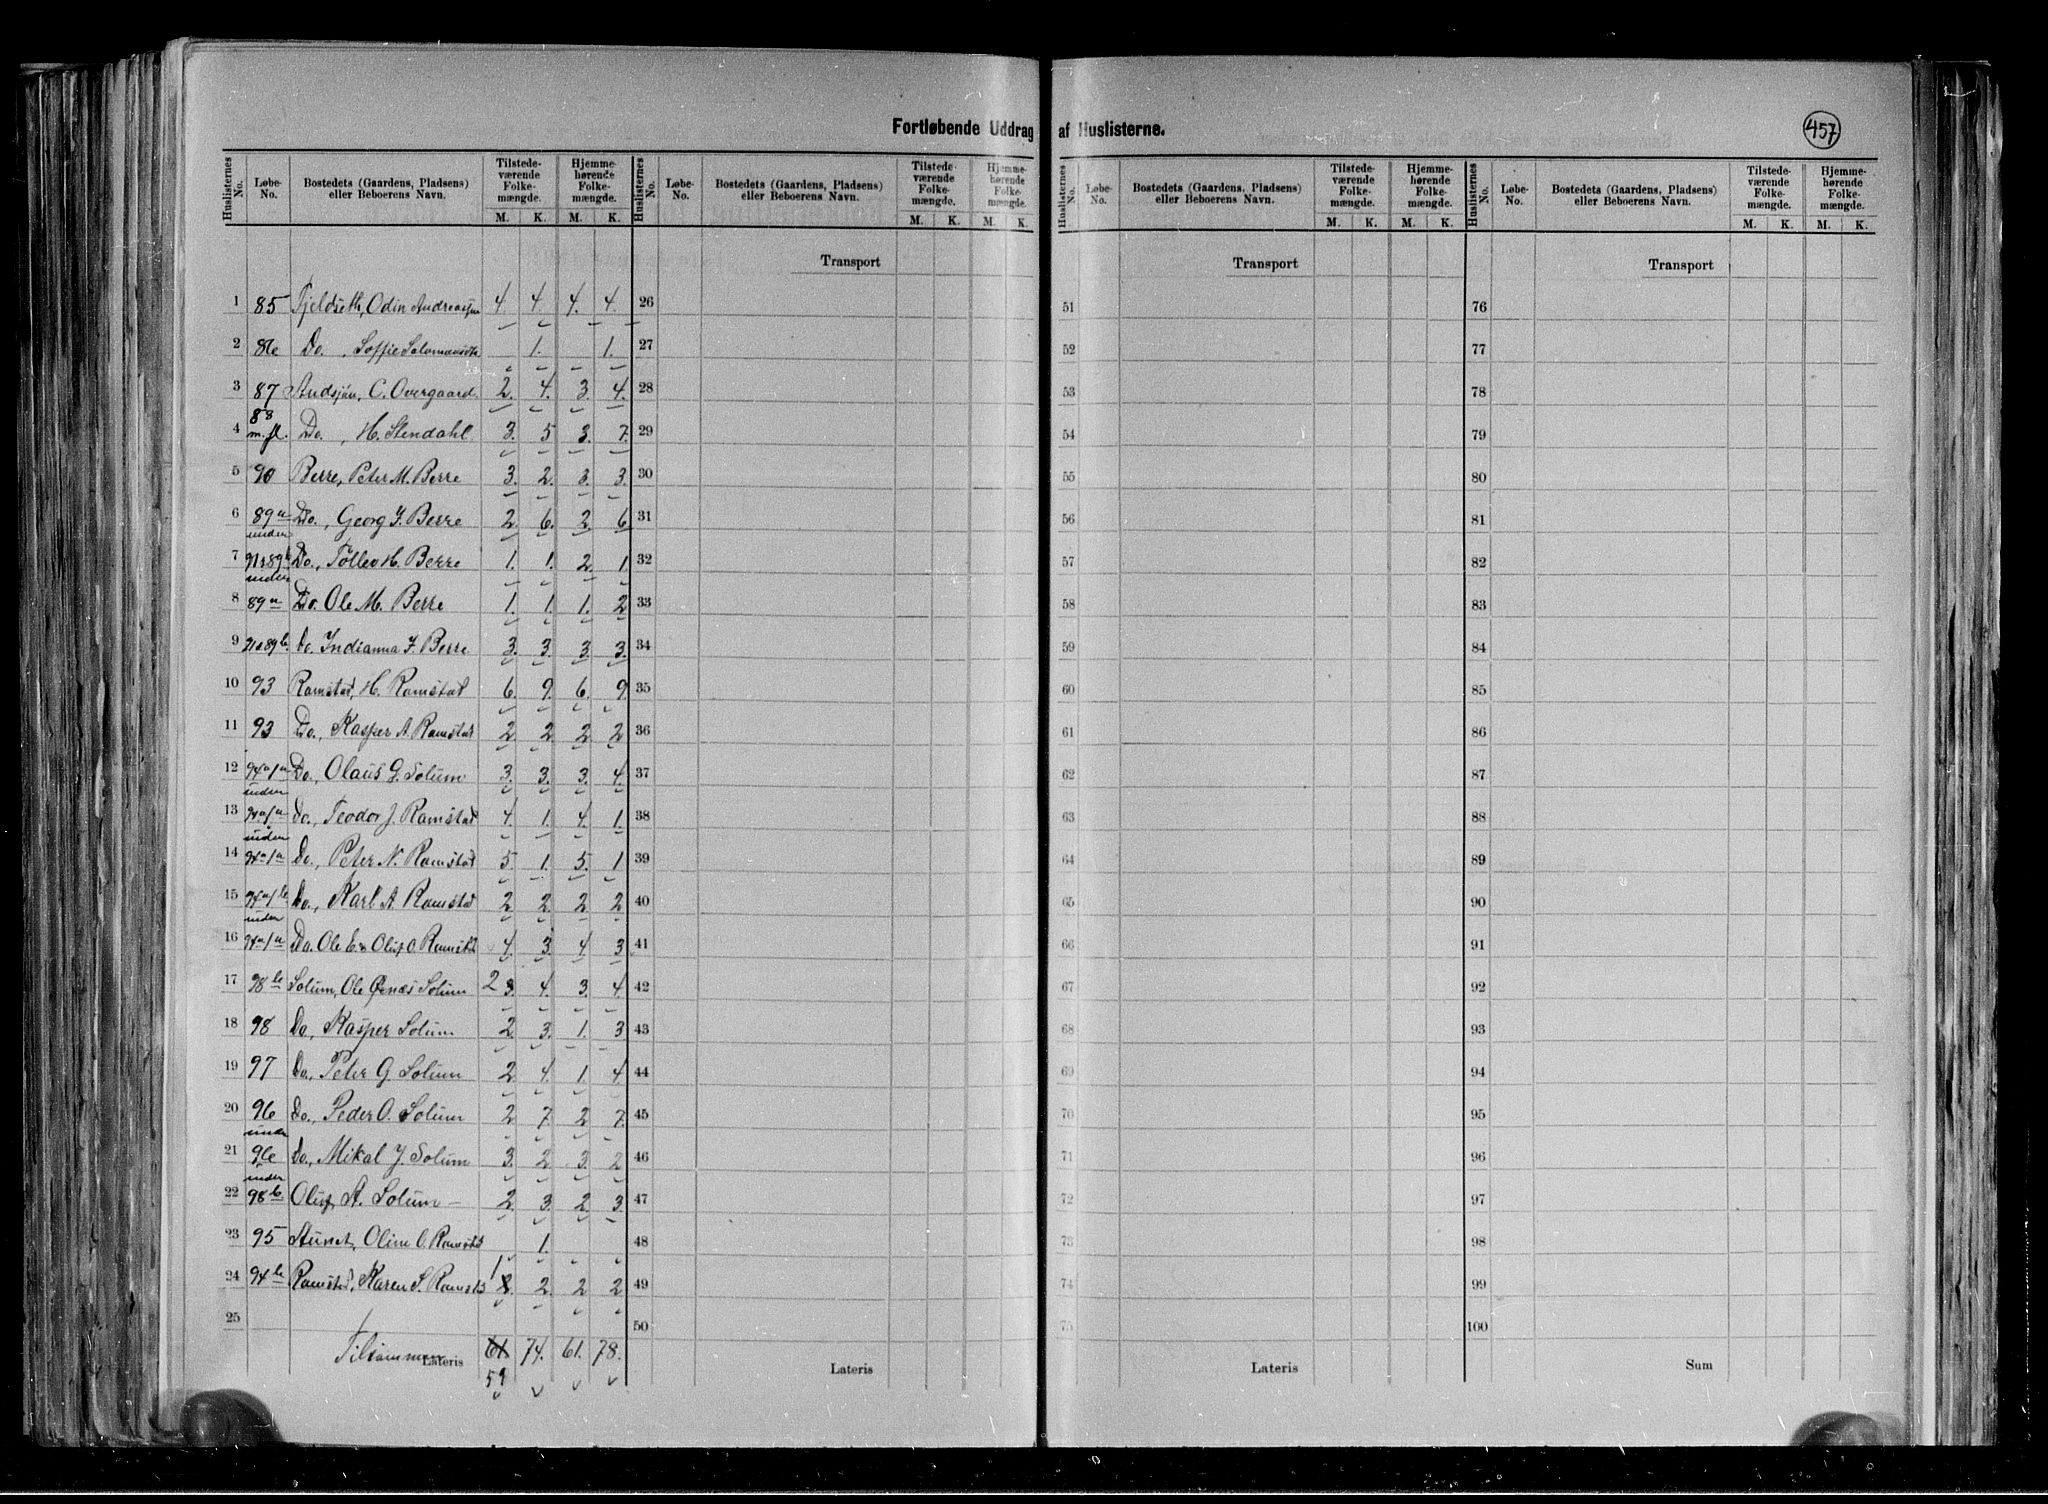 457
Fortløbende Uddrag af Huslisterne.
Huslisternes No. Løbe-No. Bostedets (Gaardens, Pladsens) eller Beboerens Navn. Tilstedeværende Folkemængde. M. K. Hjemmehørende Folkemængde. M. K.
Huslisternes No. Løbe-No. Bostedets (Gaardens, Pladsens) eller Beboerens Navn. Tilstedeværende Folkemængde. M. K. Hjemmehørende Folkemængde. M. K.
Huslisternes No. Løbe-No. Bostedets (Gaardens, Pladsens) eller Beboerens Navn. Tilstedeværende Folkemængde. M. K. Hjemmehørende Folkemængde. M. K.
Huslisternes No. Løbe-No. Bostedets (Gaardens, Pladsens) eller Beboerens Navn. Tilstedeværende Folkemængde. M. K. Hjemmehørende Folkemængde. M. K.
Transport Transport Transport
1 85 Fjeldseth, Odin Andreasen 4. 4. 4. 4. 26 51 76
2 86 Do. , Soffie 1. 1. 27 52 77
3 87 Andsjön, C. Overgaard. 2. 4. 3. 4. 28 53 78
4 88 m. fl. Do. , H. Stendahl 3. 5 3. 7. 29 54 79
5 90 Berre, Peter M. Berre 3. 2. 3. 3. 30 55 80
6 89a Do., Georg J. Berre 2. 6. 2. 6 31 56 81
7 under 91 & 89b Do., Tollev H. Berre 1. 1. 2. 1. 32 57 82
8 under 89a Do. Ole M. Berre 1. 1. 1. 2 33 58 83
9 91 & 89b. Do. Indianna J. Berre 3. 3. 3. 3. 34 59 84
10 93 Ramstad, H. Ramstad 6. 9. 6. 9. 35 60 85
11 93 Do., Kasper A. Ramstad 2. 2. 2. 2 36 61 86
12 94a/a Do., Olaus G. Solum 3. 3. 3. 4. 37 62 87
13 under 94a/a Do., Teodor J. Ramstad 4. 1. 4. 1. 38 63 88
14 under 94a/a Do., Peter N. Ramstad 5. 1. 5. 1 39 64 89
15 94a/b Do., Karl A. Ramstad 2. 2. 2. 2 40 65 90
16 under 94a/a Do. Ole E. & Oluf O. Ramstad 4. 3. 4. 3. 41 66 91
17 98b Solum, Ole Solum 2 3. 4. 3. 4. 42 67 92
18 98 Do., Kasper Solum 2. 3. 1. 3 43 68 93
19 97 Do., Peter G. Solum 2. 4. 1. 4 44 69 94
20 96 Do., Peder O. Solum 2 7. 2 7. 45 70 95
21 under 96 Do., Mikal J. Solum 3. 2. 3. 2 46 71 96
22 under 98b Oluf A. Solum — 2. 3. 2. 3. 47 72 97
23 95 Oline O. Ramstad 1. 48 73 98
24 94b Ramstad, Karen S. Ramstad 1 2. 2. 2 2 49 74 99
25 50 75 100
Tilsammen Lateris 61 74. 61. 78. Lateris Lateris Sum
59